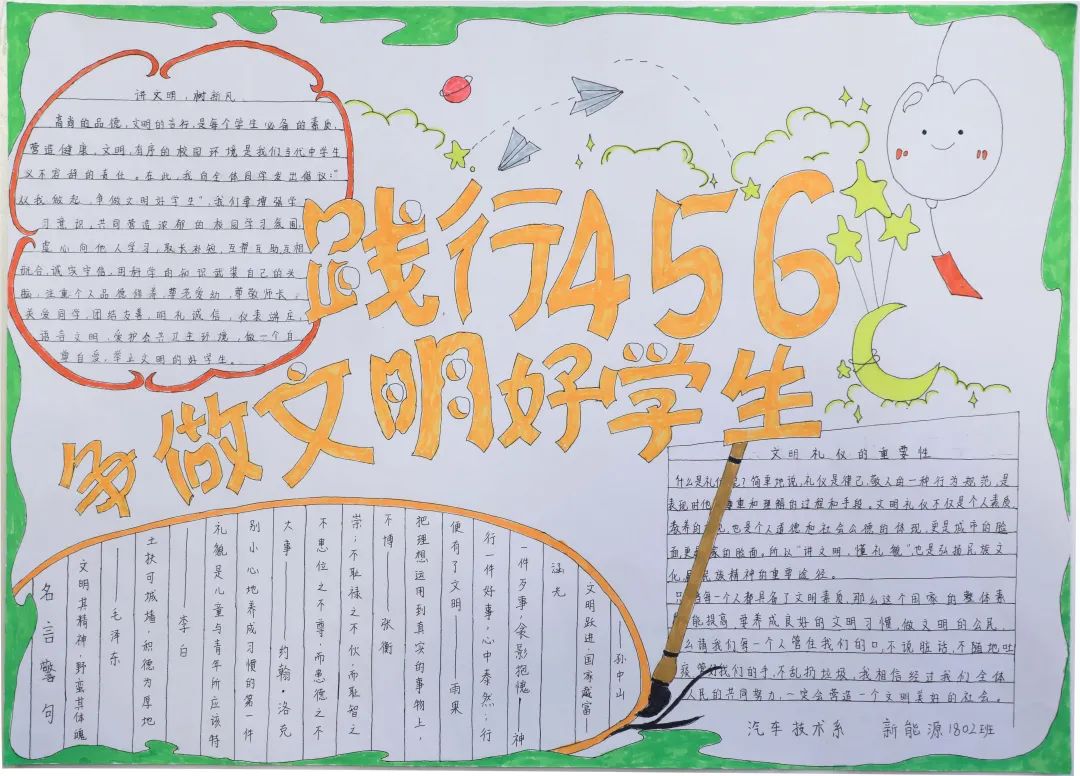 践行456
争做文明好学生
讲文明，树新风
高尚的品德，文明的言行，是每个学生必备的素质，
营造健康，文明，有序的校园环境是我们当代中学生
义不容辞的责任。在此，我向全体同学发出倡议：“
从我做起，争做文明好学生”，我们要增强学
习意识，共同营造浓郁的校园学习氛围，
虚心向他人学习，取长补短，互帮互助，互相
融合，诚实守信，用科学的知识武装自己的头
脑，注重个人品德修养，尊老爱幼，尊敬师长，
关爱同学，团结友善，明礼诚信，仪表端庄，
语言文明，爱护公共卫生环境，做一个自
尊自爱，举止文明的好学生。
名言警句
文明其精神，野蛮其体魄
——毛泽东
土扶可城墙，积德为厚地
——李白
礼貌是儿童与青年所应该特
别小心地养成习惯的第一件
大事——约翰·洛克
不患位之不尊，而患德之不
崇；不耻禄之不伙，而耻智之
不博——张衡
把理想运用到真实的事物上，
便有了文明——雨果
行一件好事，心中泰然；行
一件歹事，衾影抱愧——神
涵光
文明跃进，国家富
——孙中山
文明礼仪的重要性
什么是礼仪呢？简单地说，礼仪是律己、敬人的一种行为规范，是
表现对他尊重和理解的过程和手段。文明礼仪不仅是个人素质、
教养的体现，也是个人道德和社会公德的体现，更是城市的脸
面更是国家的脸面。所以“讲文明，懂礼貌”也是弘扬民族文
化，民族精神的重要途径。
每一个人都具备了文明素质，那么这个国家的整体素
能提高，要养成良好的文明习惯，做文明的公民，
么请我们每一个人管住我们的口，不说脏话，不随地吐
痰，管好我们的手，不乱扔垃圾，我相信经过我们全体
人民的共同努力，一定会营造一个文明美好的社会。
汽车技术系 新能源1802班